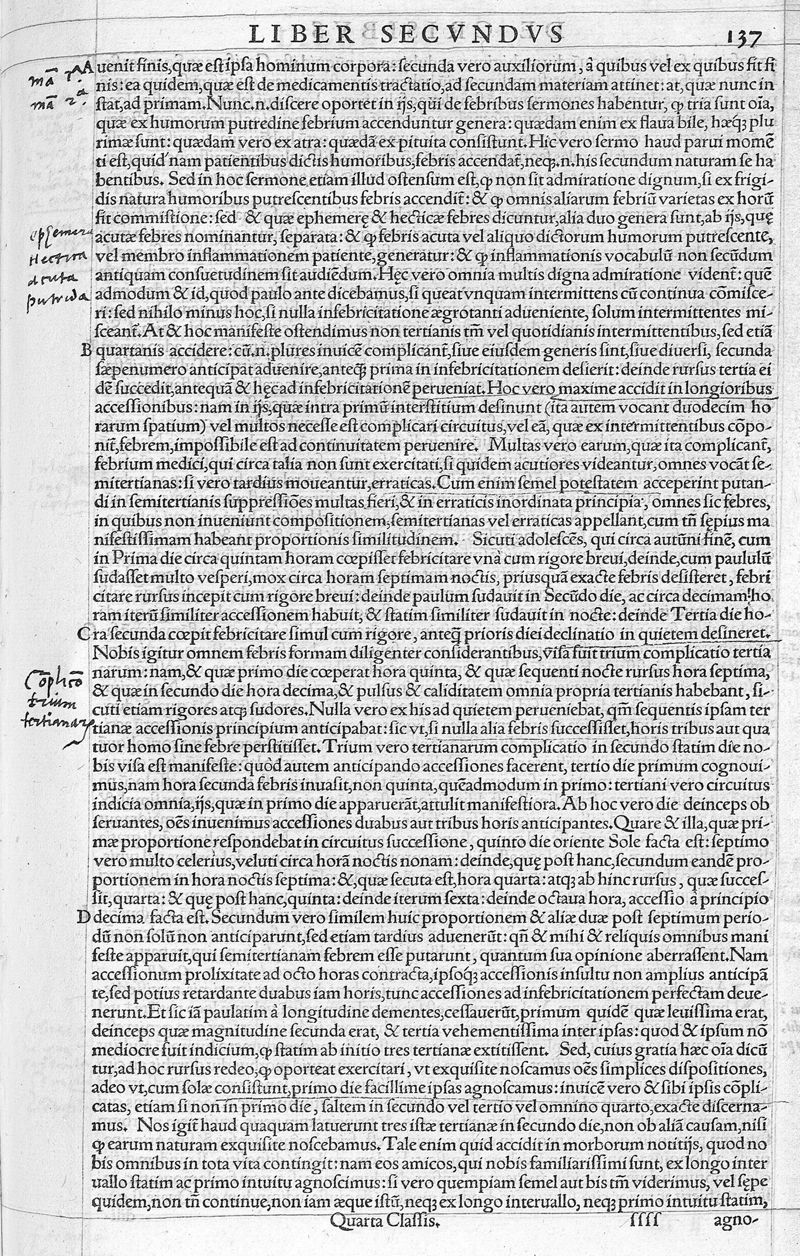 LIBER SECVNDVS 137
Auenit finis, quæ est ipsa hominum corpora: secunda vero auxiliorum, à quibus vel ex quibus fit fi
nis: ea quidem, quæ est de medicamentis tractatio, ad secundam materiam attinet: at, quæ nunc in
stat, ad primam. Nunc .n. discere oportet in ijs, qui de febribus sermones habentur, ꝙ tria sunt oīa,
quæ ex humorum putredine febrium accenduntur genera: quædam enim ex flaua bile, hæqꝫ plu
rimæ sunt: quædam vero ex atra: quædā ex pituita consistunt. Hic vero sermo haud parui momē
ti est, quid nam patientibus dictis humoribus, febris accendat̃, neqꝫ .n. his secundum naturam se ha
bentibus. Sed in hoc sermone etiam illud ostensum est, ꝙ non sit admiratione dignum, si ex frigi-
dis natura humoribus putrescentibus febris accendit̃: & ꝙ omnis aliarum febriū varietas ex horū
fit commistione: sed & quæ ephemerę & hecticæ febres dicuntur, alia duo genera sunt, ab ijs, quę
acutæ febres nominantur, separata: & ꝙ febris acuta vel aliquo dictorum humorum putrescente,
vel membro inflammationem patiente, generatur: & ꝙ inflammationis vocabulū non secūdum
antiquam consuetudinem sit audiēdum. Hęc vero omnia multis digna admiratione vident̃: quē
admodum & id, quod paulo ante dicebamus, si queat vnquam intermittens cū continua cōmisce-
ri: sed nihilo minus hoc, si nulla infebricitatione ægrotanti adueniente, solum intermittentes mi-
sceant̃. At & hoc manifeste ostendimus non tertianis tm̃ vel quotidianis intermittentibus, sed etiā
B quartanis accidere: cū .n. plures inuicē complicant̃, siue eiusdem generis sint, siue diuersi, secunda
sæpenumero anticipat aduenire, anteqꝫ prima in infebricitationem desierit: deinde rursus tertia ei
dē succedit, antequā & hęc ad infebricitationē perueniat. Hoc vero maxime accidit in longioribus
accessionibus: nam in ijs, quæ intra primū interstitium desinunt (ita autem vocant duodecim ho
rarum spatium) vel multos necesse est complicari circuitus, vel eā, quæ ex intermittentibus cōpo-
nit̃, febrem, impossibile est ad continuitatem peruenire. Multas vero earum, quæ ita complicant̃,
febrium medici, qui circa talia non sunt exercitati, si quidem acutiores videantur, omnes vocāt se-
mitertianas: si vero tardius moueantur, erraticas. Cum enim semel potestatem acceperint putan-
di in semitertianis suppressiōes multas fieri, & in erraticis inordinata principia, omnes sic febres,
in quibus non inueniunt compositionem, semitertianas vel erraticas appellant, cum tñ sępius ma
nifestissimam habeant proportionis similitudinem. Sicuti adolescēs, qui circa autūni finē, cum
in Prima die circa quintam horam cœpisset febricitare vnà cum rigore breui, deinde, cum paululū
sudasset multo vesperi, mox circa horam septimam noctis, priusquā exacte febris desisteret, febri
citare rursus incepit cum rigore breui: deinde paulum sudauit in Secūdo die, ac circa decimam ho
ram iterū similiter accessionem habuit, & statim similiter sudauit in nocte: deinde Tertia die ho-
C ra secunda cœpit febricitare simul cum rigore, anteqꝫ prioris diei declinatio in quietem desineret.
Nobis igitur omnem febris formam diligenter considerantibus, visa fuit trium complicatio tertia
narum: nam, & quæ primo die cœperat hora quinta, & quæ sequenti nocte rursus hora septima,
& quæ in secundo die hora decima, & pulsus & caliditatem omnia propria tertianis habebant, si-
cuti etiam rigores atqꝫ sudores. Nulla vero ex his ad quietem perueniebat, qm̃ sequentis ipsam ter
tianæ accessionis principium anticipabat: sic vt, si nulla alia febris successisset, horis tribus aut qua
tuor homo sine febre perstitisset. Trium vero tertianarum complicatio in secundo statim die no-
bis visa est manifeste: quòd autem anticipando accessiones facerent, tertio die primum cognoui-
mus, nam hora secunda febris inuasit, non quinta, quēadmodum in primo: tertiani vero circuitus
indicia omnia, ijs, quæ in primo die apparuerāt, attulit manifestiora. Ab hoc vero die deinceps ob
seruantes, oēs inuenimus accessiones duabus aut tribus horis anticipantes. Quare & illa, quæ pri-
mæ proportione respondebat in circuitus successione, quinto die oriente Sole facta est: septimo
vero multo celerius, veluti circa horā noctis nonam: deinde, quę post hanc, secundum eandē pro-
portionem in hora noctis septima: &, quæ secuta est, hora quarta: atqꝫ ab hinc rursus, quæ succes-
sit, quarta: & quę post hanc, quinta: deinde iterum sexta: deinde octaua hora, accessio à principio
D decima facta est. Secundum vero similem huic proportionem & aliæ duæ post septimum perio-
dū non solū non anticiparunt, sed etiam tardius aduenerūt: qñ & mihi & reliquis omnibus mani
feste apparuit, qui semitertianam febrem esse putarunt, quantum sua opinione aberrassent. Nam
accessionum prolixitate ad octo horas contracta, ipsoqꝫ accessionis insultu non amplius anticipā
te, sed potius retardante duabus iam horis, tunc accessiones ad infebricitationem perfectam deue-
nerunt. Et sic iā paulatim à longitudine dementes, cessauerūt, primum quidē quæ leuissima erat,
deinceps quæ magnitudine secunda erat, & tertia vehementissima inter ipsas: quod & ipsum nō
mediocre fuit indicium, ꝙ statim ab initio tres tertianæ extitissent. Sed, cuius gratia hæc oīa dicū
tur, ad hoc rursus redeo, ꝙ oporteat exercitari, vt exquisite noscamus oēs simplices dispositiones,
adeo vt, cum solæ consistunt, primo die facillime ipsas agnoscamus: inuicē vero & sibi ipsis cōpli-
catas, etiam si non in primo die, saltem in secundo vel tertio vel omnino quarto, exacte discerna-
mus. Nos igit̃ haud quaquam latuerunt tres istæ tertianæ in secundo die, non ob aliā causam, nisi
ꝙ earum naturam exquisite noscebamus. Tale enim quid accidit in morborum notitijs, quod no
bis omnibus in tota vita contingit: nam eos amicos, qui nobis familiarissimi sunt, ex longo inter
uallo statim ac primo intuitu agnoscimus: si vero quempiam semel aut bis tm̃ viderimus, vel sępe
quidem, non tñ continue, non iam æque istū, neqꝫ ex longo interuallo, neqꝫ primo intuitu statim,
Quarta Classis. ssss agno-
mā
mā 2.
ephemera
Hectica
acuta
putrida
Cōplicō
trium
tertianarū